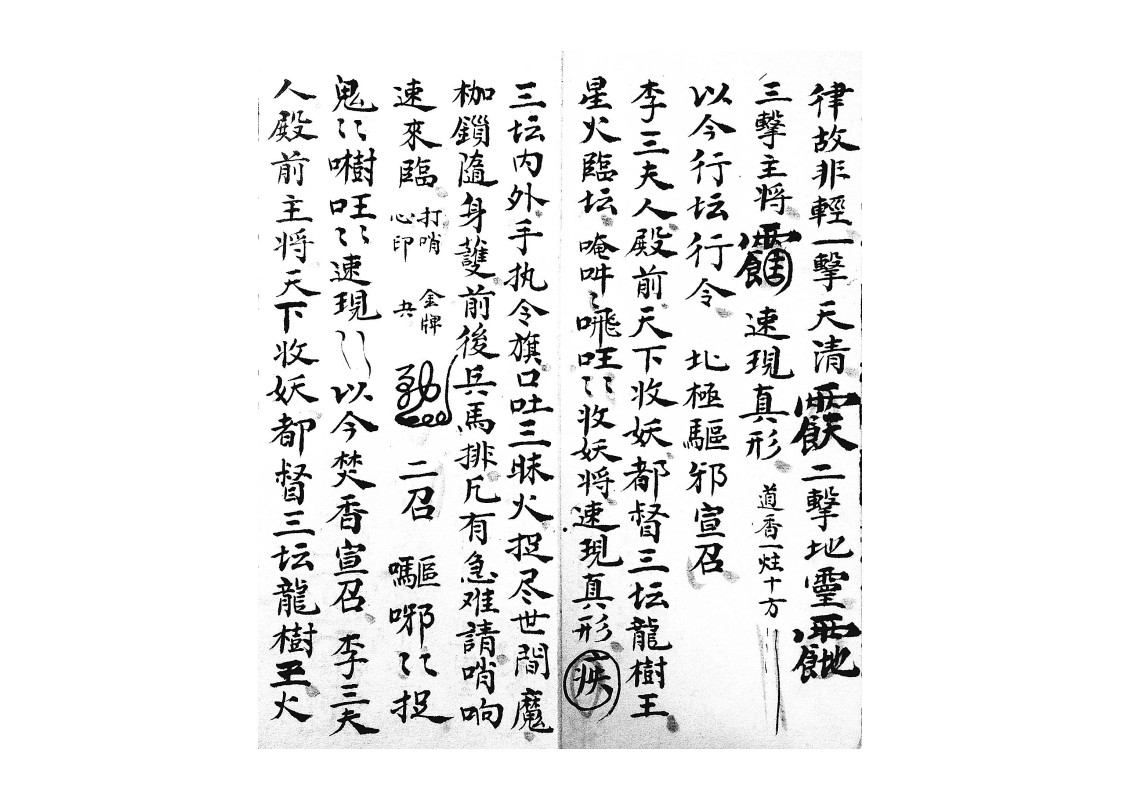 律故非輕一擊天清 二擊地靈
三擊主将 速現真形 道香一炷十方
以今行坛行令 北極驅邪宣召
李三夫人殿前天下收妖都督三坛龍樹王
星火臨坛 唵吽〻 㗙旺〻 收妖将速現真形 疾
三坛内外手执令旗口吐三昧火捉尽世間魔
枷鎖隨身護前後兵馬排兵有急难請哨响
速來臨 打哨 心印 金牌 二召 囉哪〻捉
鬼〻 𠹌旺〻速現〻 以今焚香宣召 李三夫
人殿前主将天下收妖都督三坛龍樹王火